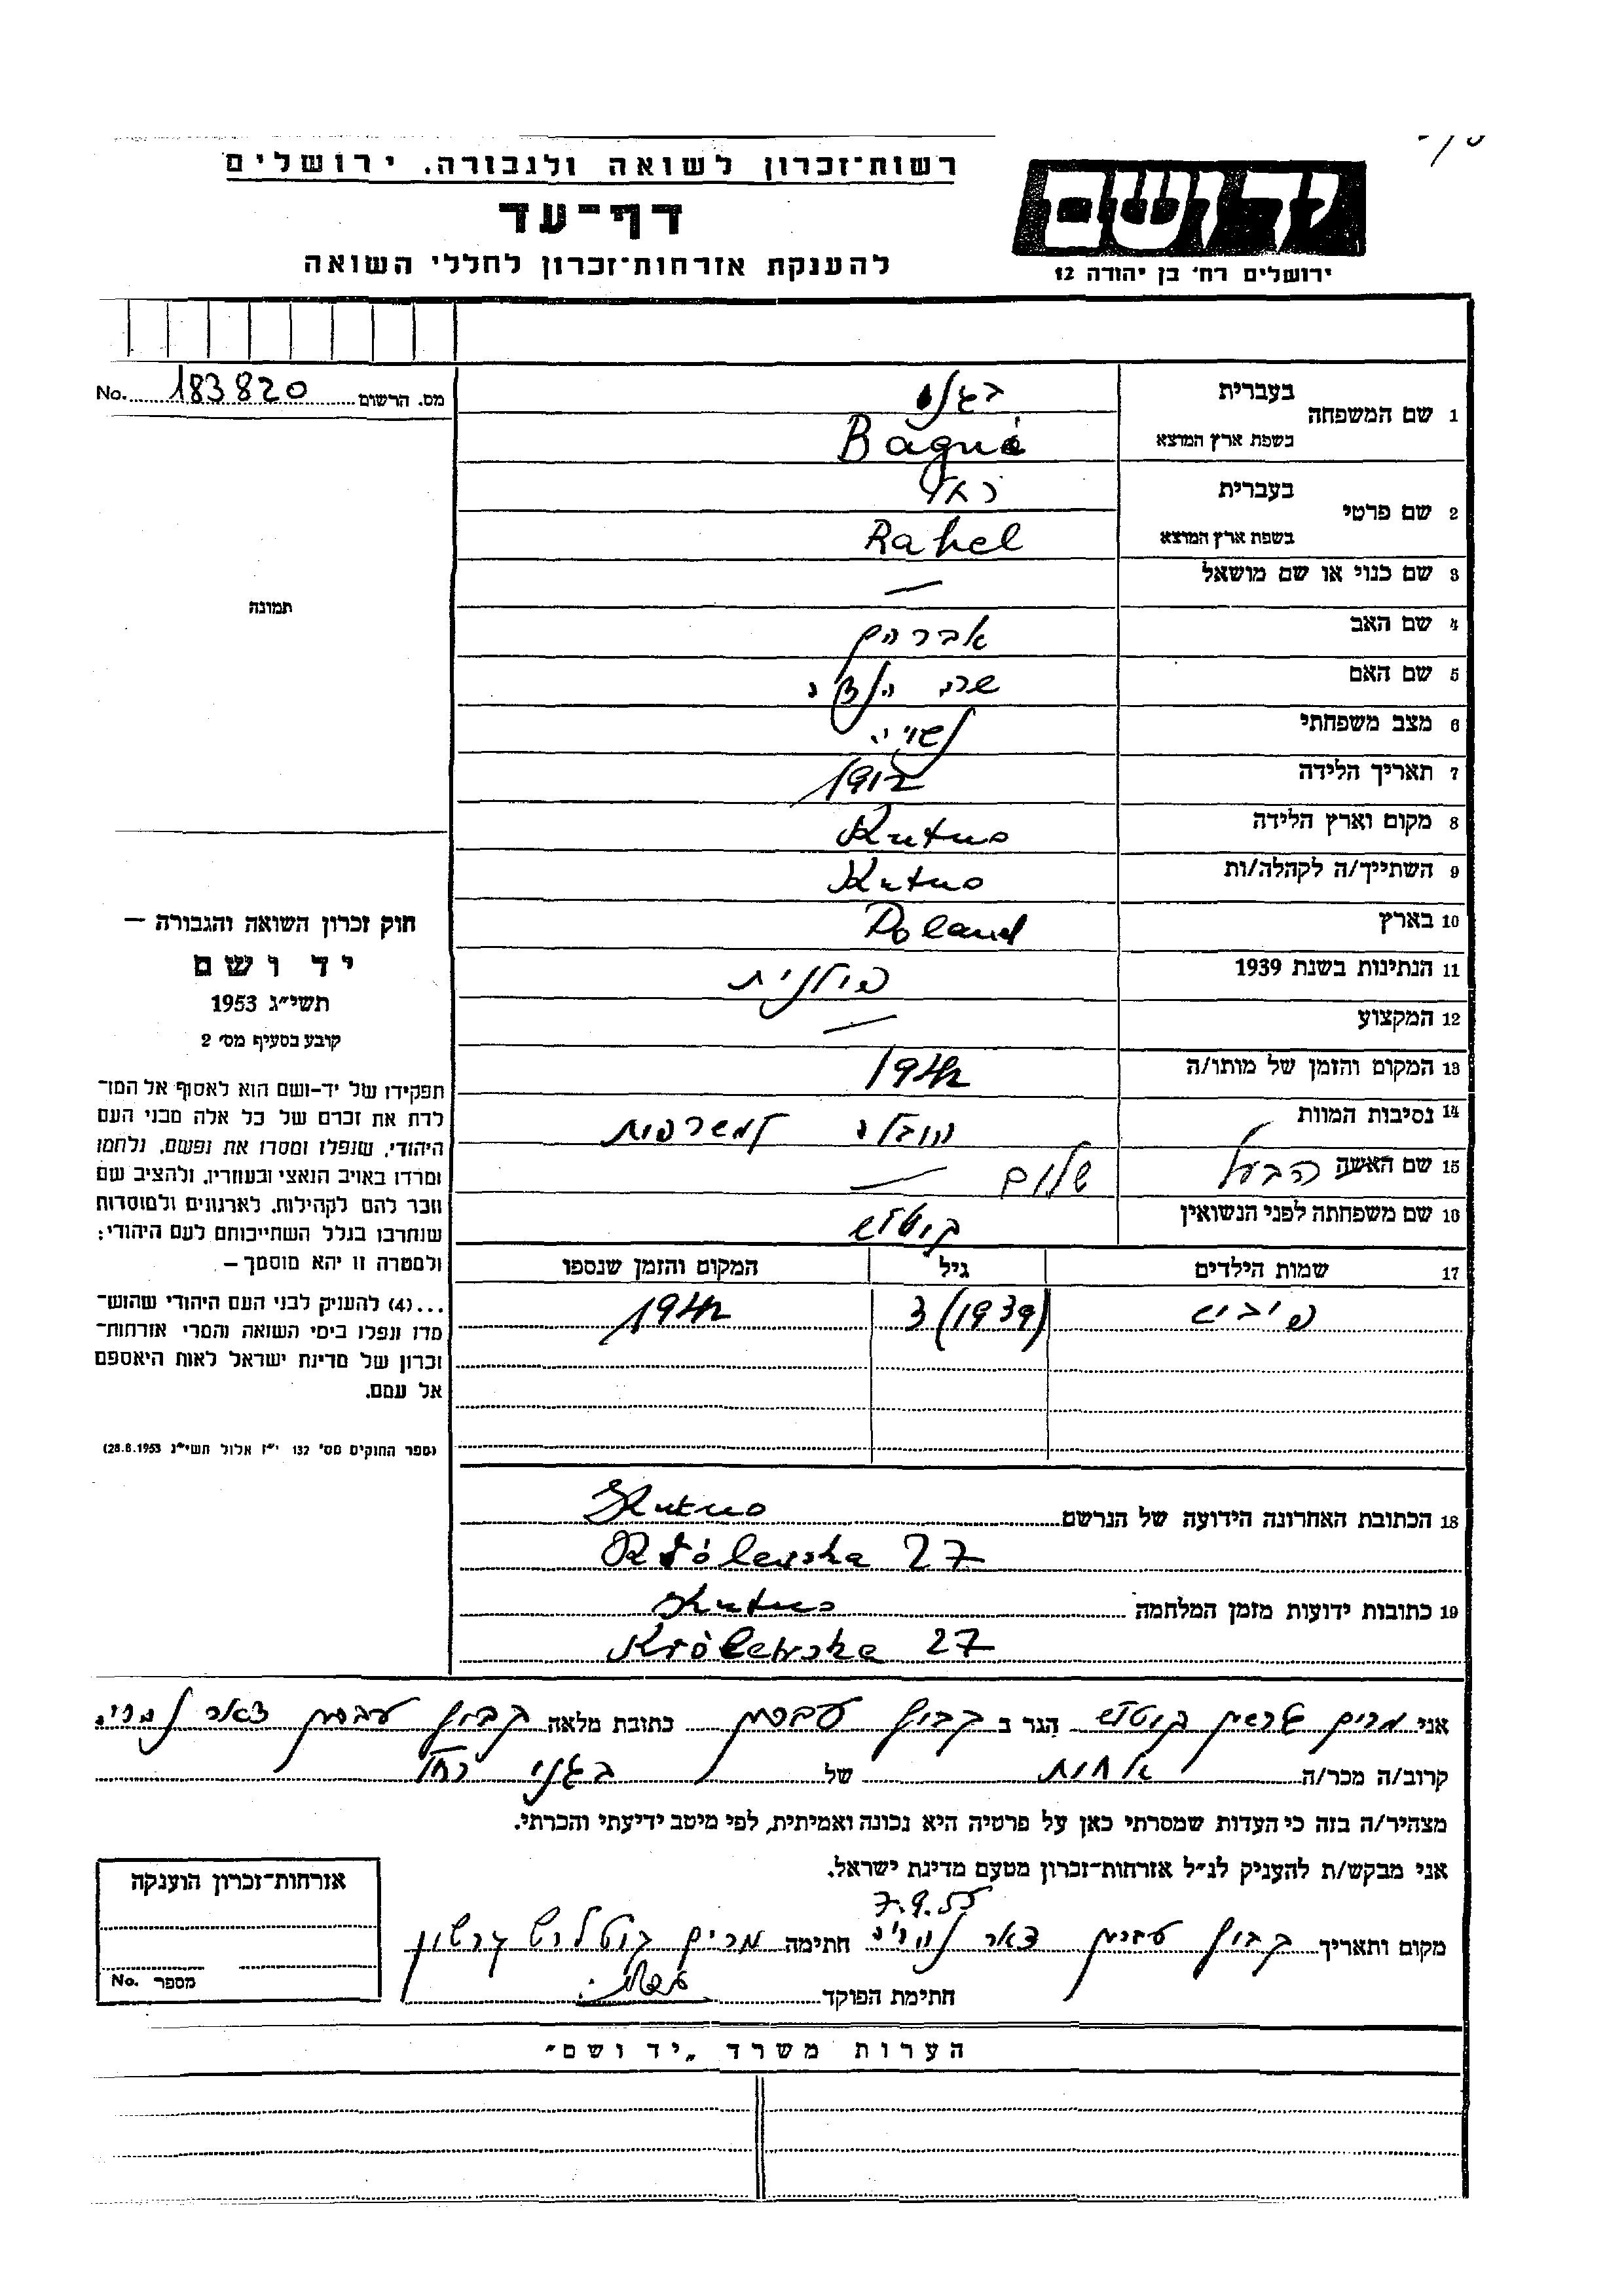 רשות־זכרון לשואה ולגבורה, ירושלים
דף־עד
להענקת אזרחות־זכרון לחללי השואה
יד ושם
ירושלים רח׳ בן יהודה 12
מס. הרשום 183820 No.
1 שם המשפחה
בעברית
בשפת ארץ המוצא Bagné
2 שם פרטי
בעברית רחל
בשפת ארץ המוצא Rahel
3 שם כנוי או שם מושאל —
4 שם האב אברהם
5 שם האם שרה
6 מצב משפחתי נשואה
7 תאריך הלידה 1912
8 מקום וארץ הלידה Kutno
9 השתייך/ה לקהלה/ות Kutno
10 בארץ Poland
11 הנתינות בשנת 1939 פולנית
12 המקצוע —
13 המקום והזמן של מותו/ה 1942
14 נסיבות המוות הובלה למשרפות
15 שם האשה הבעל שלום —
16 שם משפחתה לפני הנשואין
17 שמות הילדים גיל המקום והזמן שנספו
3 (1939) 1942
18 הכתובת האחרונה הידועה של הנרשם Kutno
Królewska 27
19 כתובות ידועות מזמן המלחמה Kutno
Królewska 27
תמונה
חוק זכרון השואה והגבורה —
יד ושם
תשי״ג 1953
קובע בסעיף מס׳ 2
תפקידו של יד-ושם הוא לאסוף אל המו־
לדת את זכרם של כל אלה מבני העם
היהודי, שנפלו ומסרו את נפשם, נלחמו
ומרדו באויב הנאצי ובעוזריו, ולהציב שם
וזכר להם לקהילות, לארגונים ולמוסדות
שנחרבו בגלל השתייכותם לעם היהודי;
ולמטרה זו יהא מוסמך –
...(4) להעניק לבני העם היהודי שהוש־
מדו ונפלו בימי השואה והמרי אזרחות־
זכרון של מדינת ישראל לאות היאספם
אל עמם.
(ספר החוקים מס׳ 132 י״ז אלול תשי״ג 28.8.1953)
אני מרים הגר ב קבוץ כתובת מלאה קבוץ דאר
קרוב/ה מכר/ה אחות של בגני רחל
מצהיר/ה בזה כי העדות שמסרתי כאן על פרטיה היא נכונה ואמיתית, לפי מיטב ידיעתי והכרתי.
אני מבקש/ת להעניק לנ״ל אזרחות־זכרון מטעם מדינת ישראל.
7.9.55
מקום ותאריך קבוץ דאר נהריה חתימה מרים
חתימת הפוקד
אזרחות־זכרון הוענקה
מספר No.
הערות משרד „יד ושם״